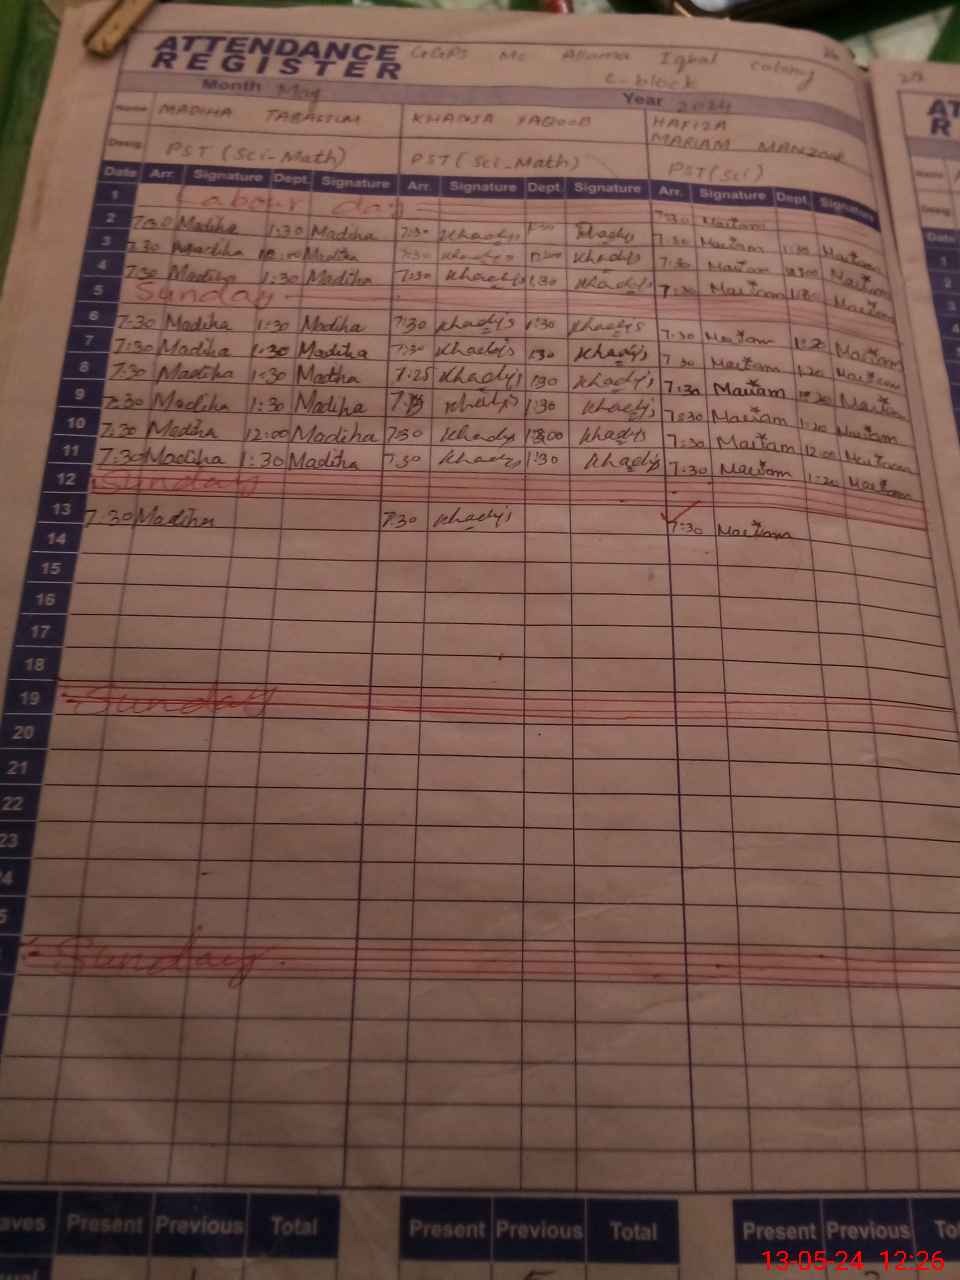 ATTENDANCE REGISTER GGPS Mc Allama Iqbal Colony
C-block
Month May Year 2024
Name MADIHA TABASSUM KHADIJA YAQOOB HAFIZA MARIAM MANZOOR
Desig. PST (Sci-Math) PST (Sci-Math) PST (Sci)
Date Arr. Signature Dept. Signature Arr. Signature Dept. Signature Arr. Signature Dept. Signature
1 Labour day
2 7:30 Madiha 1:30 Madiha 7:30 Khadys Khadys 7:30 Mariam Mariam
3 7:30 Madiha Madiha 7:30 Khadys Khadys 7:30 Mariam Mariam
4 7:30 Madiha 1:30 Madiha 7:30 Khadys 1:30 Khadys 7:30 Mariam Mariam
5 Sunday
6 7:30 Madiha 1:30 Madiha 7:30 Khady's 1:30 Khady's 7:30 Mariam Mariam
7 7:30 Madiha 1:30 Madiha 7:30 Khady's 130 Khady's 7:30 Mariam 1:20 Mariam
8 7:30 Madiha 1:30 Madiha 7:25 Khady's 130 Khady's 7:30 Mariam Mariam
9 7:30 Madiha 1:30 Madiha Khady's 1:30 Khady's 7:30 Mariam 1:20 Mariam
10 7:30 Madiha 12:00 Madiha 7:30 Khadys Khadys 7:30 Mariam 12:00 Mariam
11 7:30 Madiha 1:30 Madiha 7:30 Khadys 1:30 Khady's 7:30 Mariam 1:20 Mariam
12 Sunday
13 7:30 Madiha 7:30 Khady's 7:30 Mariam
14
15
16
17
18
19 Sunday
20
21
22
23
Sunday
Present Previous Total Present Previous Total Present Previous
13-05-24 12:26